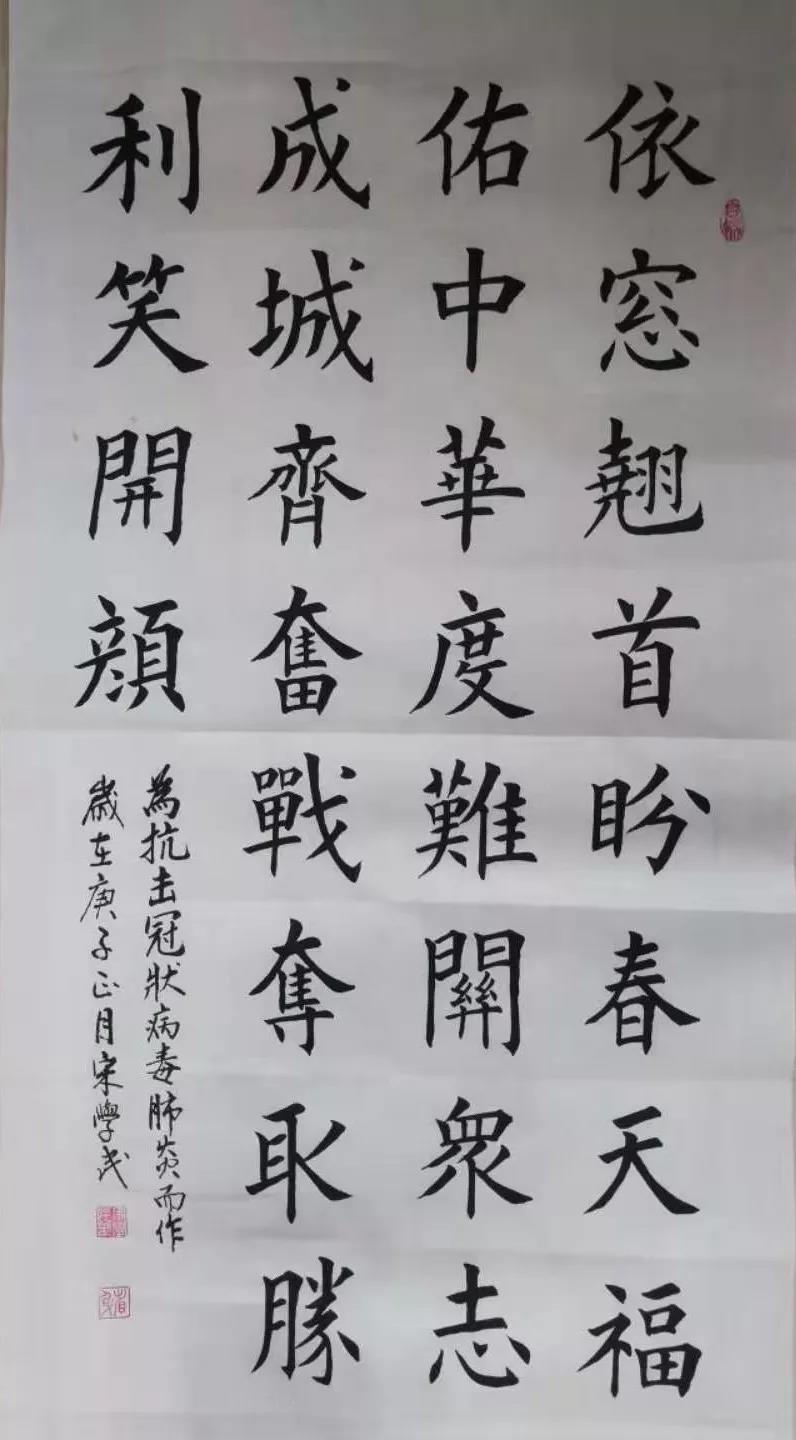 依窓翹首盼春天福
佑中華度難關衆志
成城齊奮戰奪取勝
利笑開顔
為抗击冠狀病毒肺炎而作
歲在庚子正月宋學武